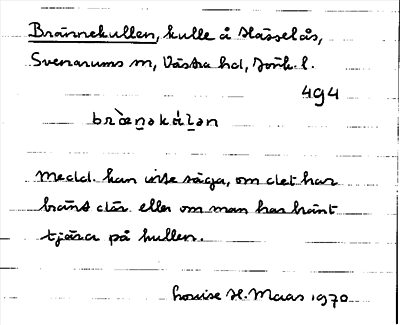 Brännekullen, kulle å Hässelås,
Svenarums sn, Västra hd, Jönk. l.
494
Medd. kan inte säga, om det har
bränt där eller om man har bränt
tjära på kullen.
Louise H. Maas 1970